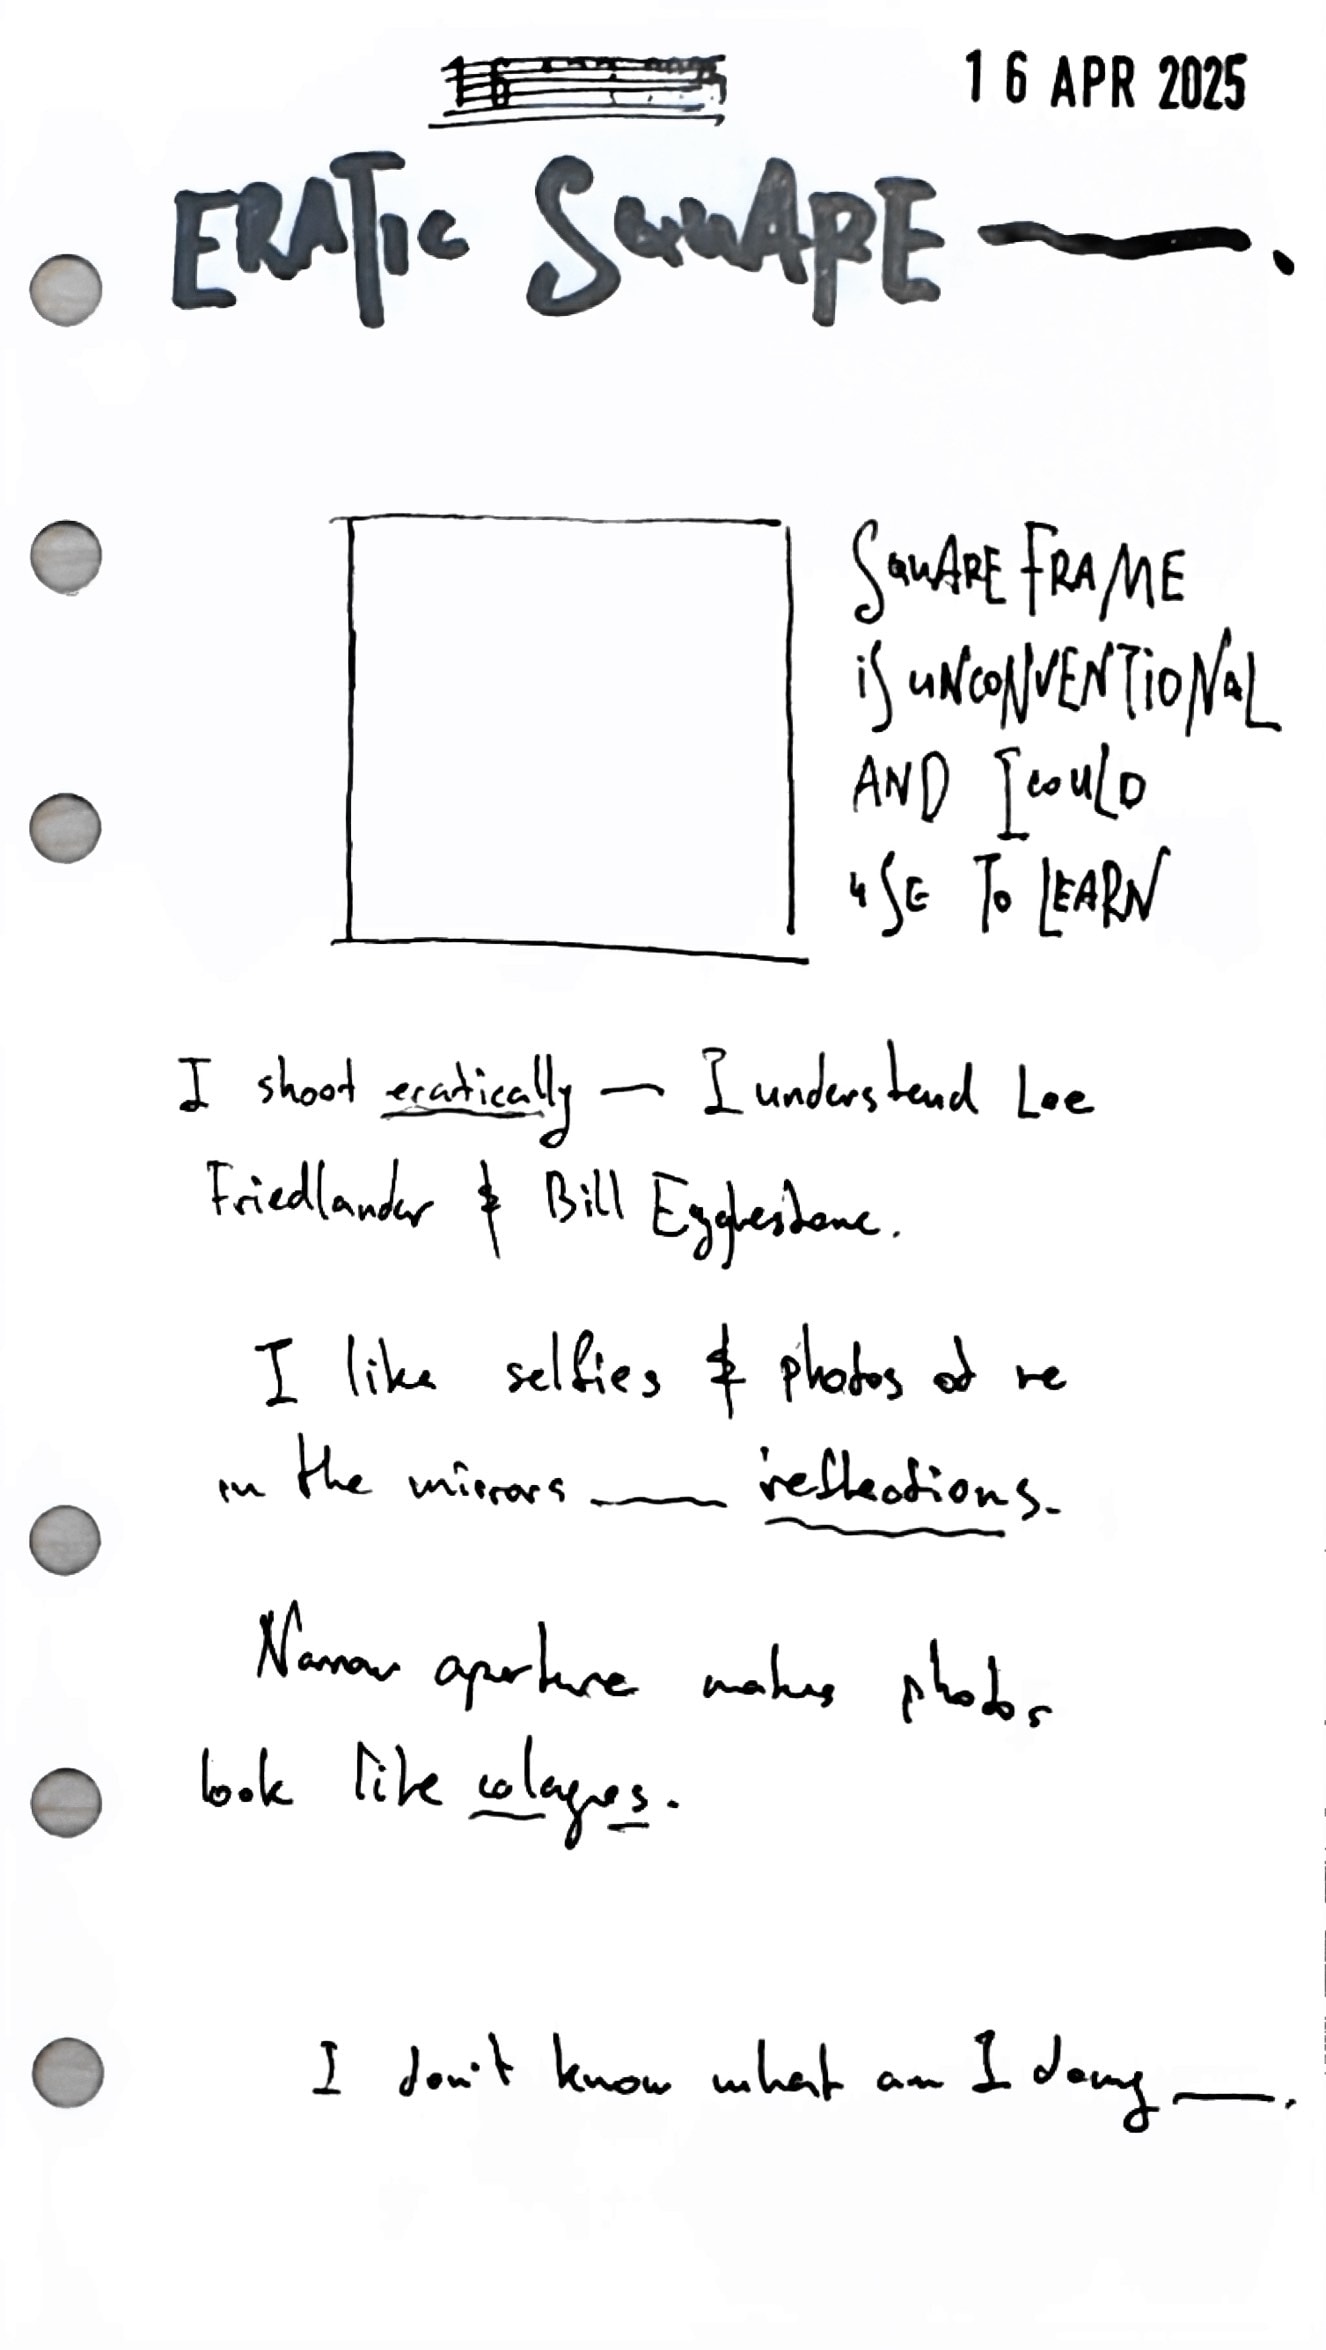 16 APR 2025
ERATIC SQUARE —.
SQUARE FRAME
iS UNCONVENTIONAL
AND I COULD
USE TO LEARN
I shoot eratically — I understand Lee
Friedlander & Bill Egglestone.
I like selfies & photos of me
in the mirrors — reflections.
Narrow aperture makes photos
look like colages.
I don't know what am I doing —.